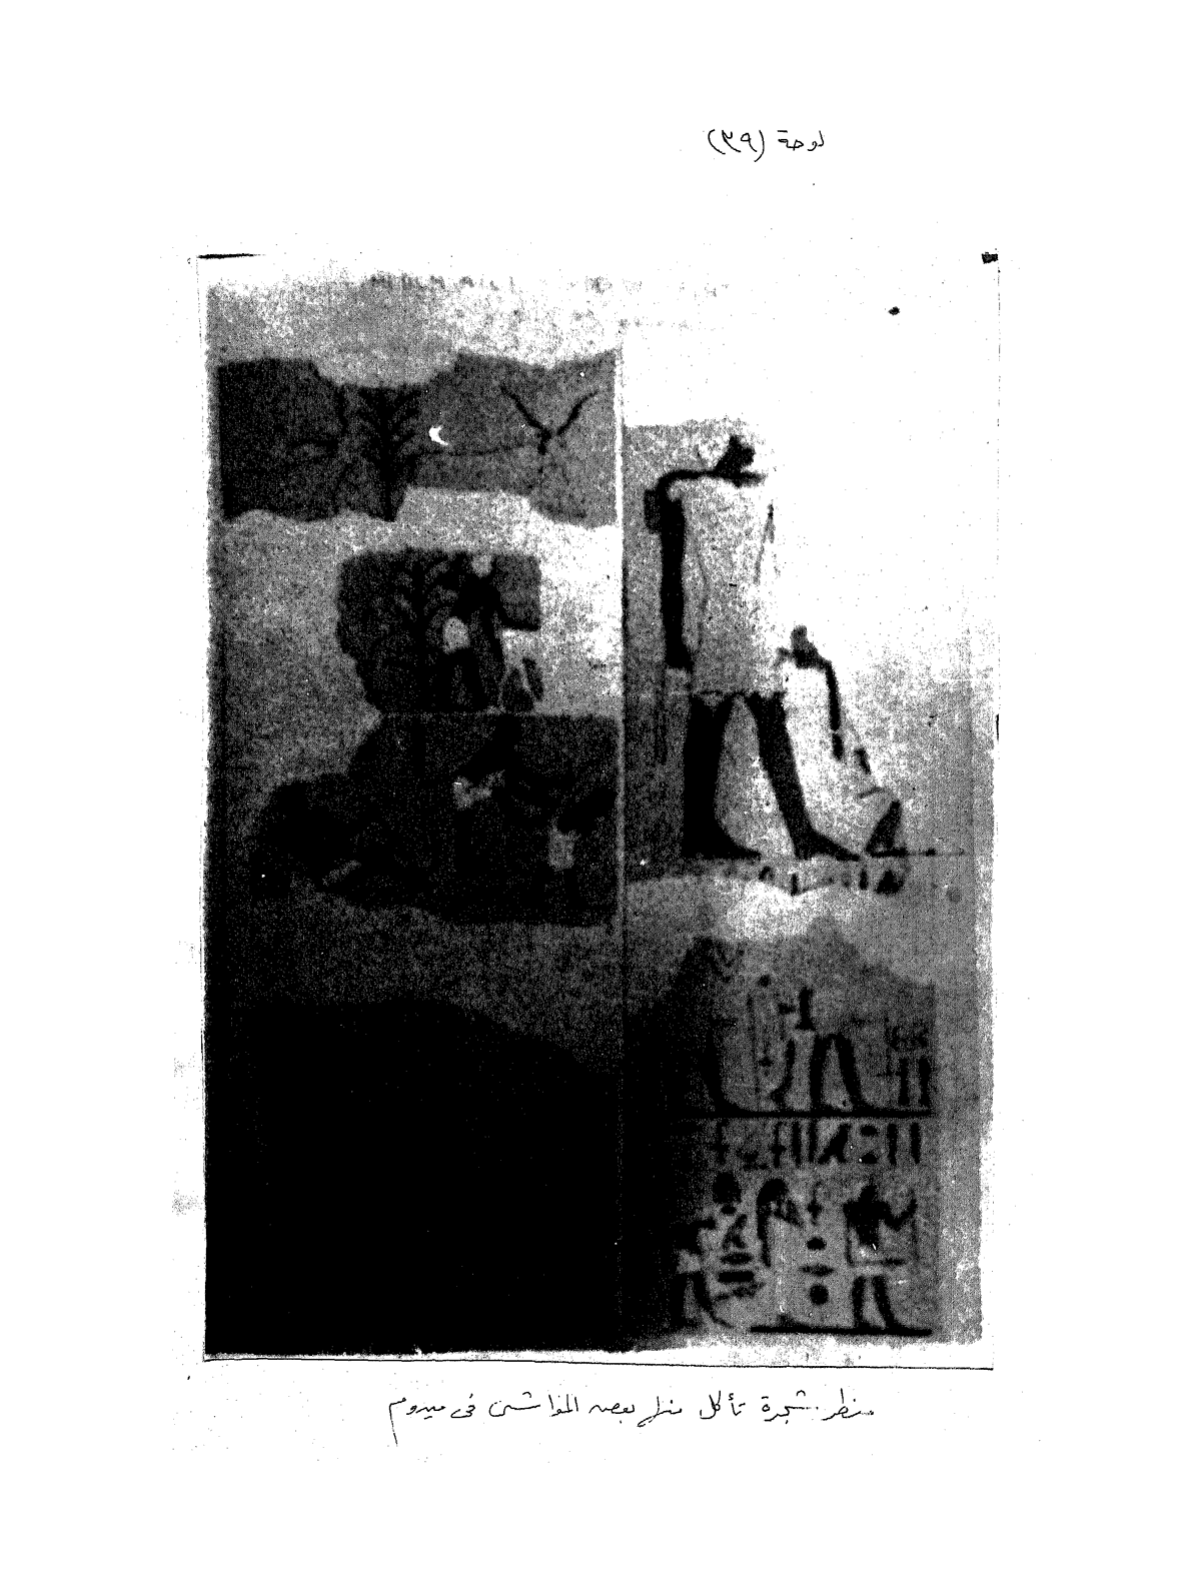 لوحة (٣٩)
منظر شجرة تأكل منها بعض المواشى فى ميدوم